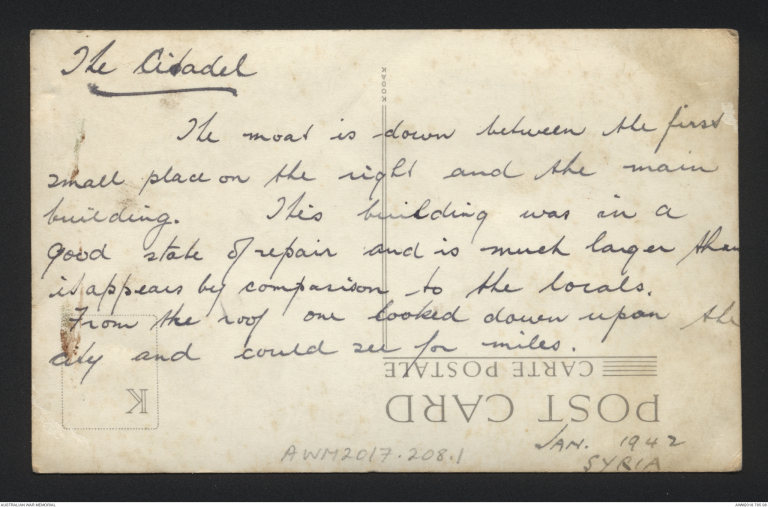 The Citadel
The moat is down between the first
small place on the right and the main
building. This building was in a
good state of repair and is much larger than
it appears by comparison to the locals.
From the roof one looked down upon the
city and could see for miles.
KODAK
CARTE POSTALE
POST CARD
K
JAN. 1942
SYRIA
AWM2017.208.1
AUSTRALIAN WAR MEMORIAL